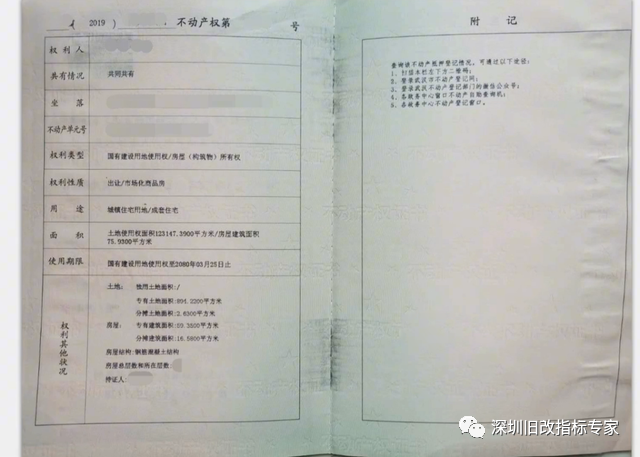 ( 2019 ) 不动产权第 号
权利人
共有情况 共同共有
坐落
不动产单元号
权利类型 国有建设用地使用权/房屋（构筑物）所有权
权利性质 出让/市场化商品房
用途 城镇住宅用地/成套住宅
面积 土地使用权面积123147.3900平方米/房屋建筑面积
75.9300平方米
使用期限 国有建设用地使用权至2080年03月25日止
权利其他状况
土地： 独用土地面积：/
专有土地面积：
分摊土地面积：2.6300平方米
房屋： 专有建筑面积：59.3500平方米
分摊建筑面积：16.5800平方米
房屋结构：钢筋混凝土结构
房屋总层数和所在层数：
持证人：
附记
查询该不动产抵押登记情况，可通过以下途径：
1、扫描本栏左下方二维码；
2、登录武汉市不动产登记网；
3、登录武汉不动产登记部门的微信公众号；
4、各政务中心窗口不动产自助查询机；
5、各政务中心不动产登记窗口。
深圳旧改指标专家